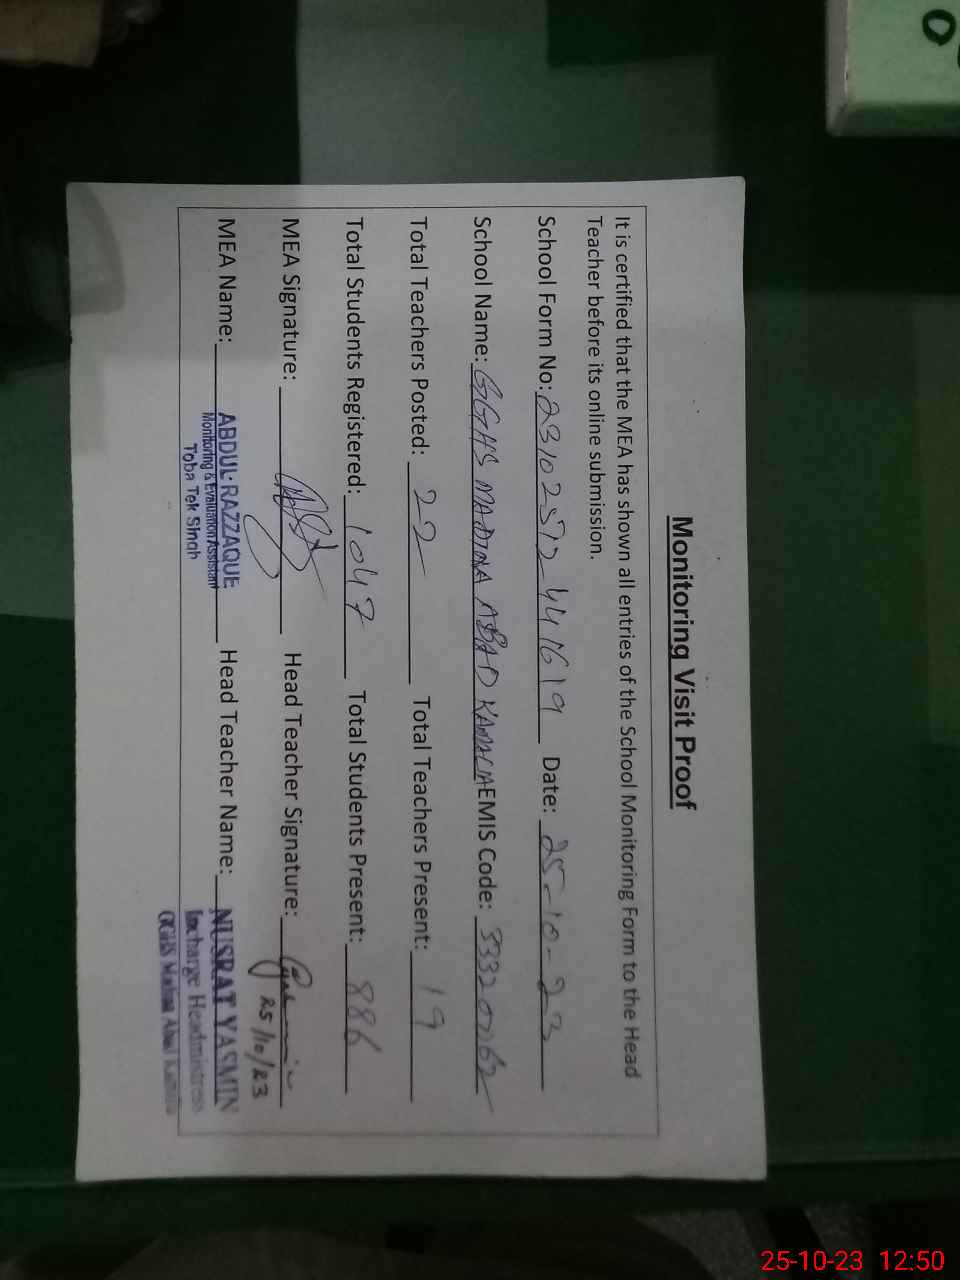 Monitoring Visit Proof
It is certified that the MEA has shown all entries of the School Monitoring Form to the Head
Teacher before its online submission.
School Form No: Date: 25-10-23
School Name: GGHS MADINA ABAD KAMALIA EMIS Code:
Total Teachers Posted: 22 Total Teachers Present: 19
Total Students Registered: 1047 Total Students Present: 886
MEA Signature: Head Teacher Signature:
25/10/23
MEA Name: ABDUL RAZZAQUE Head Teacher Name: NUSRAT YASMIN
Monitoring & Evaluation Assistant Incharge Headmistress
Toba Tek Singh GGHS Madina Abad Kamalia
25-10-23 12:50